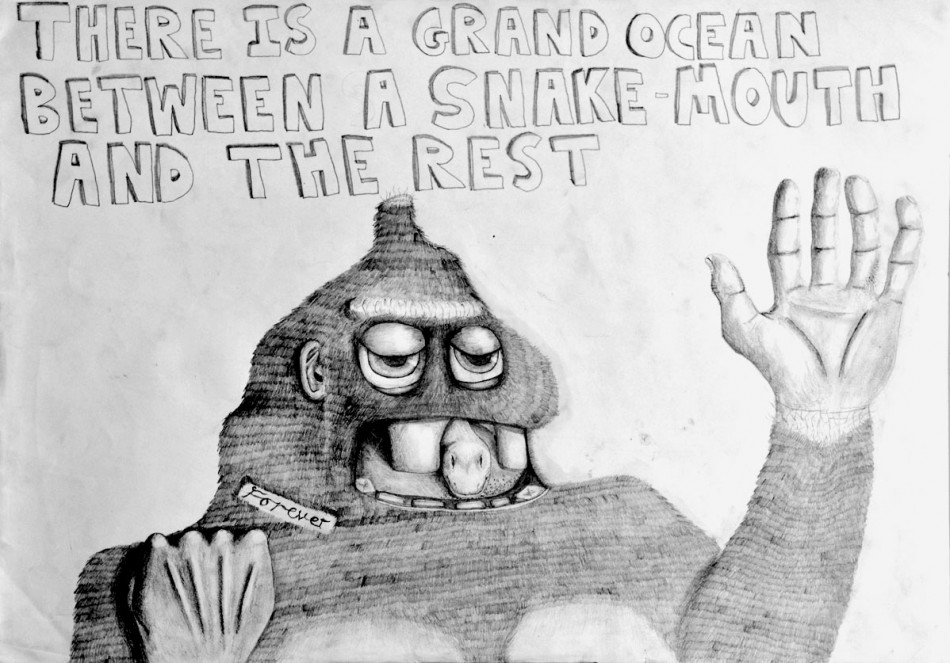 THERE IS A GRAND OCEAN
BETWEEN A SNAKE-MOUTH
AND THE REST
Forever